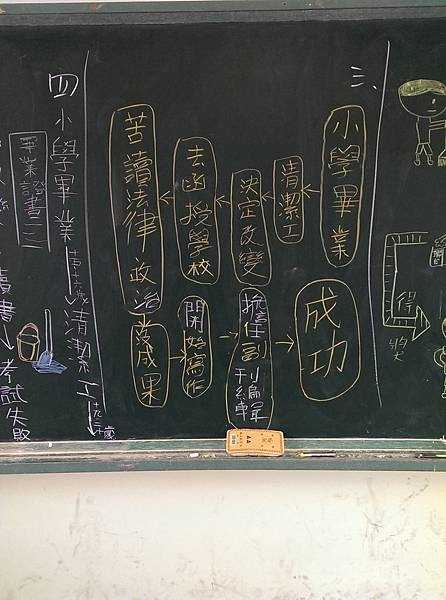 得獎
三、
小學畢業
成功
清潔工
決定改變
担任副刊編輯
去函授學校
開始寫作
苦讀法律政治
成果
四 小學畢業 十六歲 清潔工
畢業證書
讀書→考試失敗